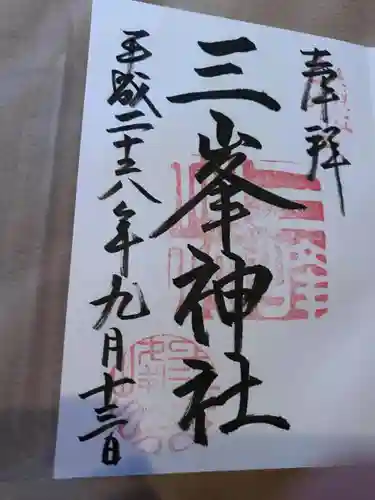 奉拜
三峯神社
平成二十八年九月十三日